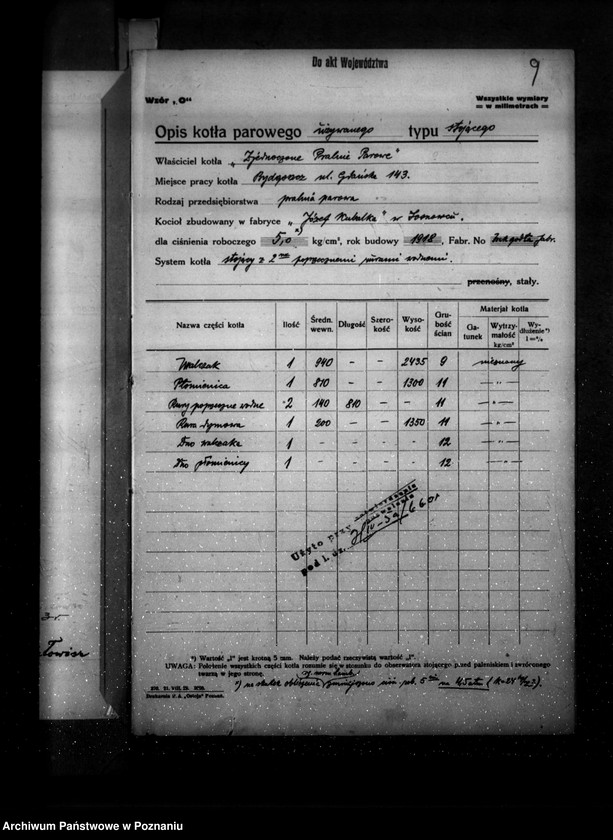 Do akt Województwa
9
Wzór „O"
Wszystkie wymiary
w milimetrach
Opis kotła parowego używanego typu stojącego
Właściciel kotła „Zjednoczone Pralnie Parowe"
Miejsce pracy kotła Bydgoszcz ul. Gdańska 143.
Rodzaj przedsiębiorstwa pralnia parowa
Kocioł zbudowany w fabryce „Józef Kubalka" w Sosnowcu.
dla ciśnienia roboczego 5,0 *) kg/cm², rok budowy 1918, Fabr. No
System kotła stojący z 2ma poprzecznemi rurami wodnemi.
przenośny, stały.
Nazwa części kotła Ilość Średn. wewn. Długość Szerokość Wysokość Grubość ścian Materjał kotła
Gatunek Wytrzymałość kg/cm² Wydłużenie*) l=%
Walczak 1 940 - - 2435 9 nieznany
Płomienica 1 810 - - 1300 11 - „ -
Rury poprzeczne wodne 2 140 810 - - 11 - „ -
Rura dymowa 1 200 - - 1350 11 - „ -
Dno walczaka 1 - - - - 12 - „ -
Dno płomienicy 1 - - - - 12 - „ -
Użyto przy zatwierdzeniu
pod l. dz.
*) Wartość „l" jest krotną 5 mm. Należy podać rzeczywistą wartość „l".
UWAGA: Położenie wszystkich części kotła rozumie się w stosunku do obserwatora stojącego przed paleniskiem i zwróconego
twarzą w jego stronę.
*) na skutek obliczenia zmniejszono
Drukarnia
Archiwum Państwowe w Poznaniu